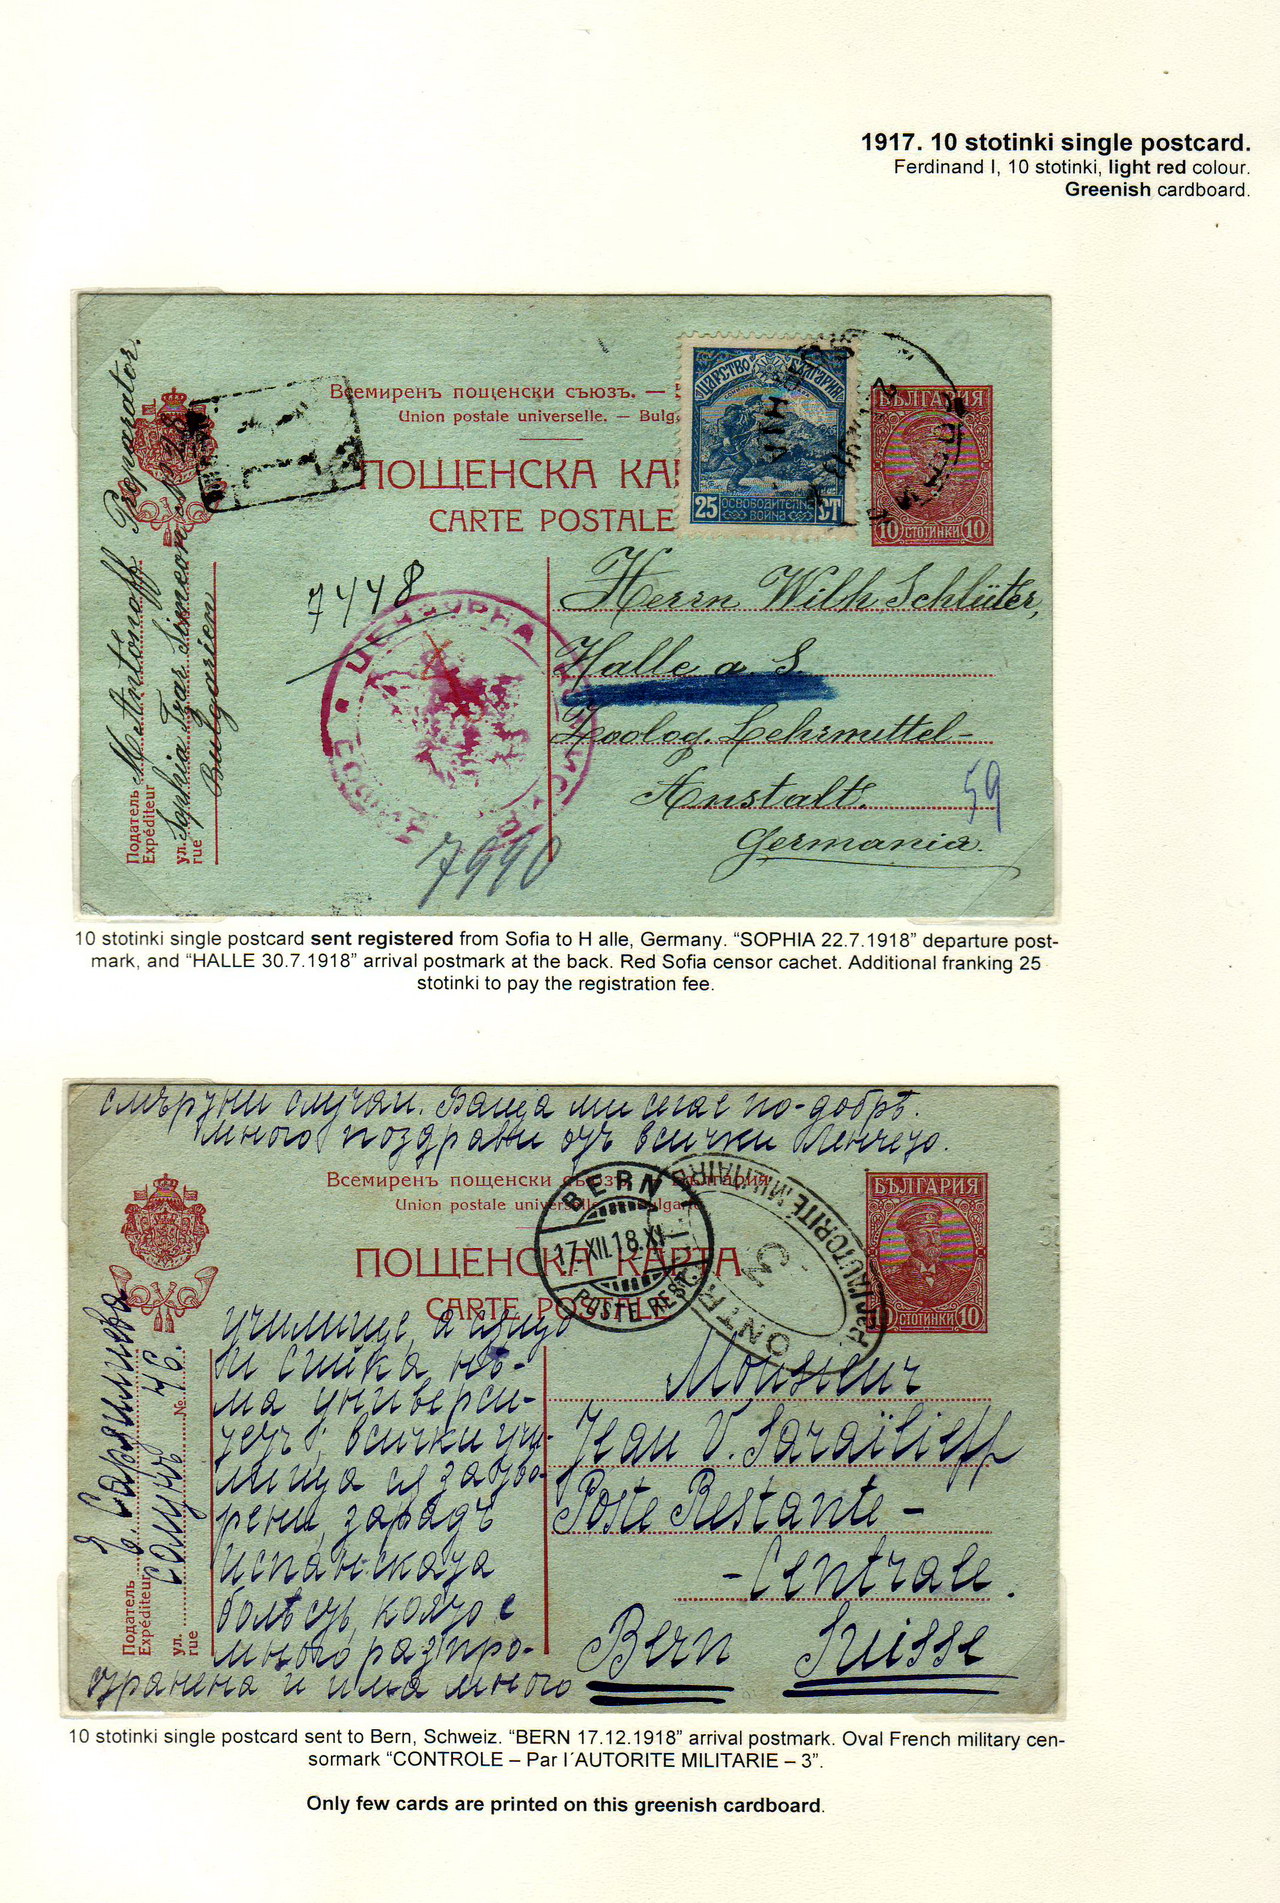 1917. 10 stotinki single postcard.
Ferdinand I, 10 stotinki, light red colour.
Greenish cardboard.
Всемиренъ пощенски съюзъ. —
Union postale universelle. — Bulg
ПОЩЕНСКА КА
CARTE POSTALE
ЦАРСТВО БЪЛГАРИЯ
25 ОСВОБОДИТЕЛНА ВОЙНА СТ
БЪЛГАРИЯ
10 СТОТИНКИ 10
Податель M. Antonoff Preparator.
Expéditeur
ул. Sophia Tzar Simeon
rue
Bulgarien
7448
ЦЕНЗОРНА
7990
Herrn Wilh Schlüter,
Halle a. S.
Zoolog. Lehrmittel-
Anstalt.
Germania.
59
10 stotinki single postcard sent registered from Sofia to H alle, Germany. “SOPHIA 22.7.1918” departure post-
mark, and “HALLE 30.7.1918” arrival postmark at the back. Red Sofia censor cachet. Additional franking 25
stotinki to pay the registration fee.
случаи. Баща ми сега е по-добрѣ.
Много поздрави отъ всички Ленчето.
Всемиренъ пощенски съюзъ
Union postale universelle Bulgarie
ПОЩЕНСКА КАРТА
CARTE POSTALE
БЪЛГАРИЯ
10 СТОТИНКИ 10
BERN 1
17.XII.18.XI
POSTE REST.
CONTR
Par l'AUTORITÉ MILITAIRE
3
Податель
Expéditeur
ул. Солунъ № 46.
rue
училище, а
нѣ-
ма универси-
тетъ, всички учи-
лища са затво-
рени, зарадъ
испанската
болѣсть, която е
много разпро-
странена и има много
Monsieur
Jean V. Saraïlieff
Poste Restante -
- Centrale.
Bern Suisse
10 stotinki single postcard sent to Bern, Schweiz. “BERN 17.12.1918” arrival postmark. Oval French military cen-
sormark “CONTROLE – Par l´AUTORITE MILITARIE – 3”.
Only few cards are printed on this greenish cardboard.